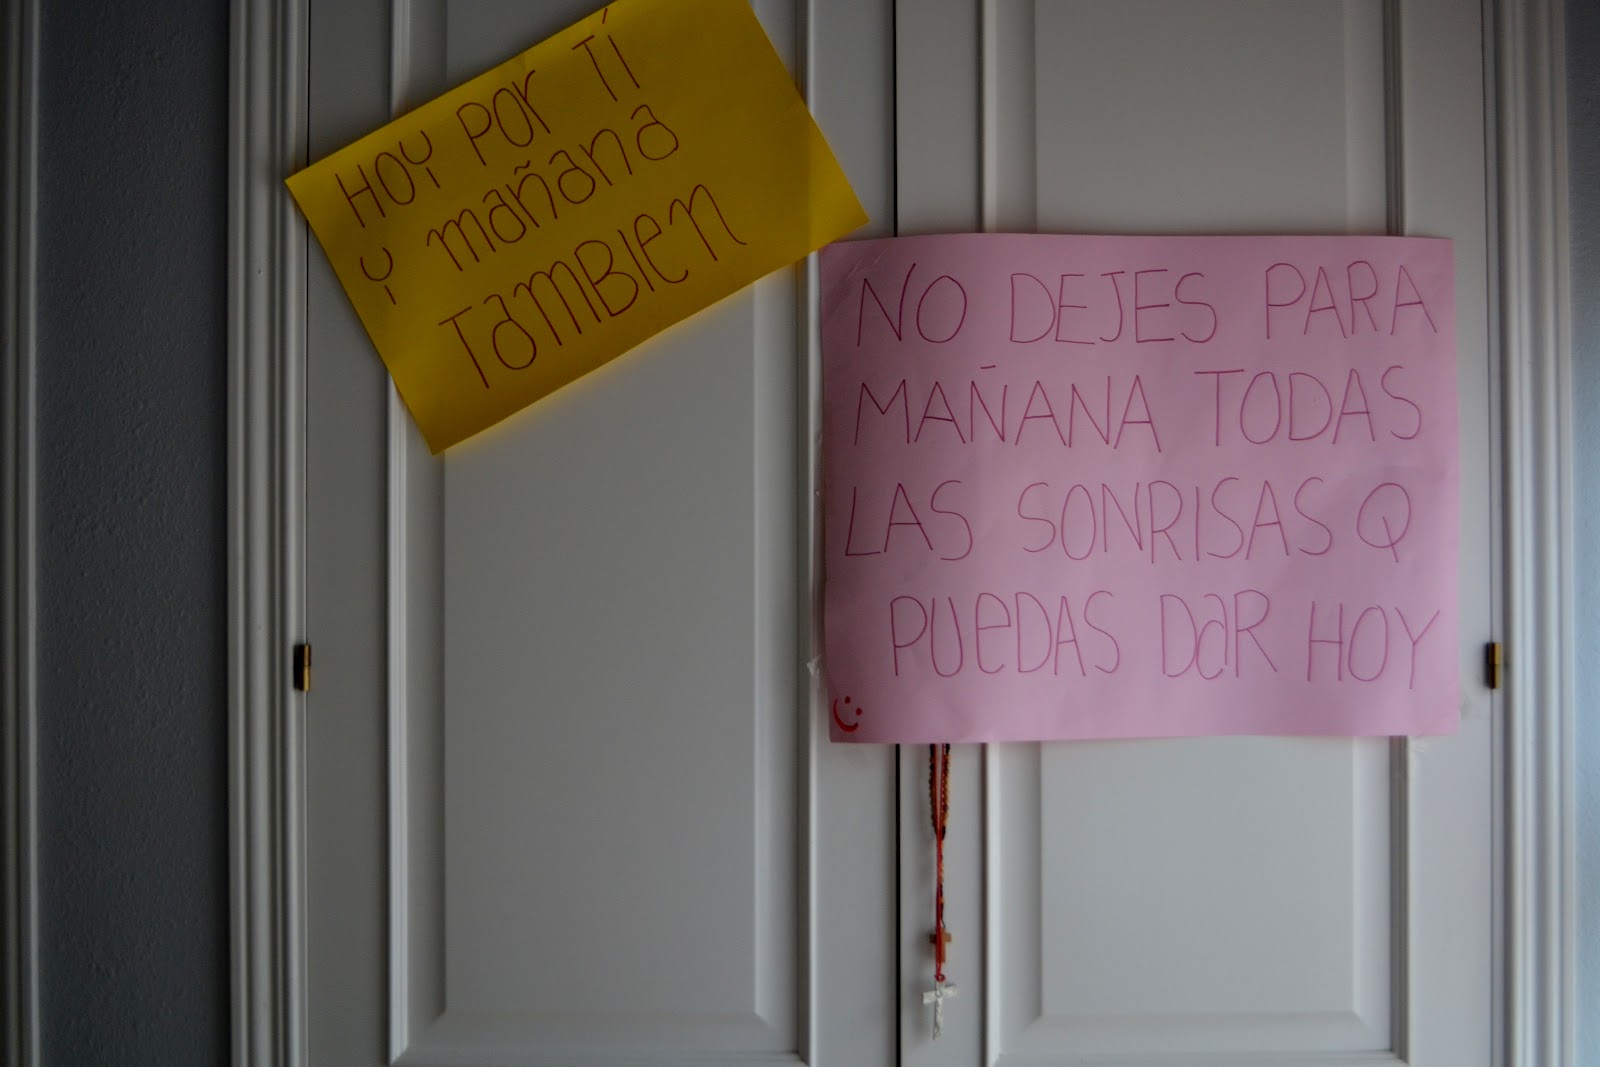 HOY POr TÍ
Y mañana
TaMBIen
NO DEJES PARA
MAÑANA TODAS
LAS SONRISAS Q
PUeDAS DaR HOY